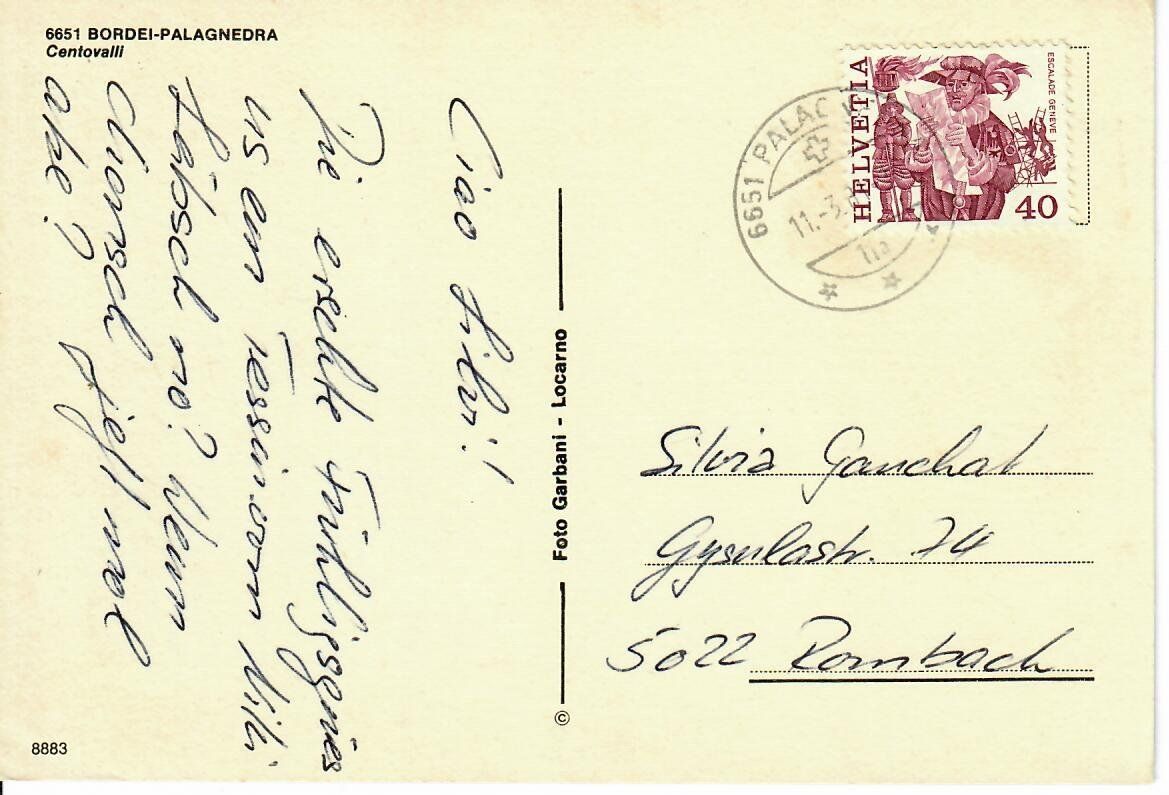 6651 BORDEI-PALAGNEDRA
Centovalli
Ciao Silv!
Die erschte Früeligsgrües
us em Tessin vom Mili
Läbsch no? Wenn
chunsch mal
abe?
Foto Garbani - Locarno
©
8883
HELVETIA
ESCALADE GENEVE
40
6651 PALAG
11.-3.
Silvia Gauchat
Gysulastr. 74
5022 Rombach